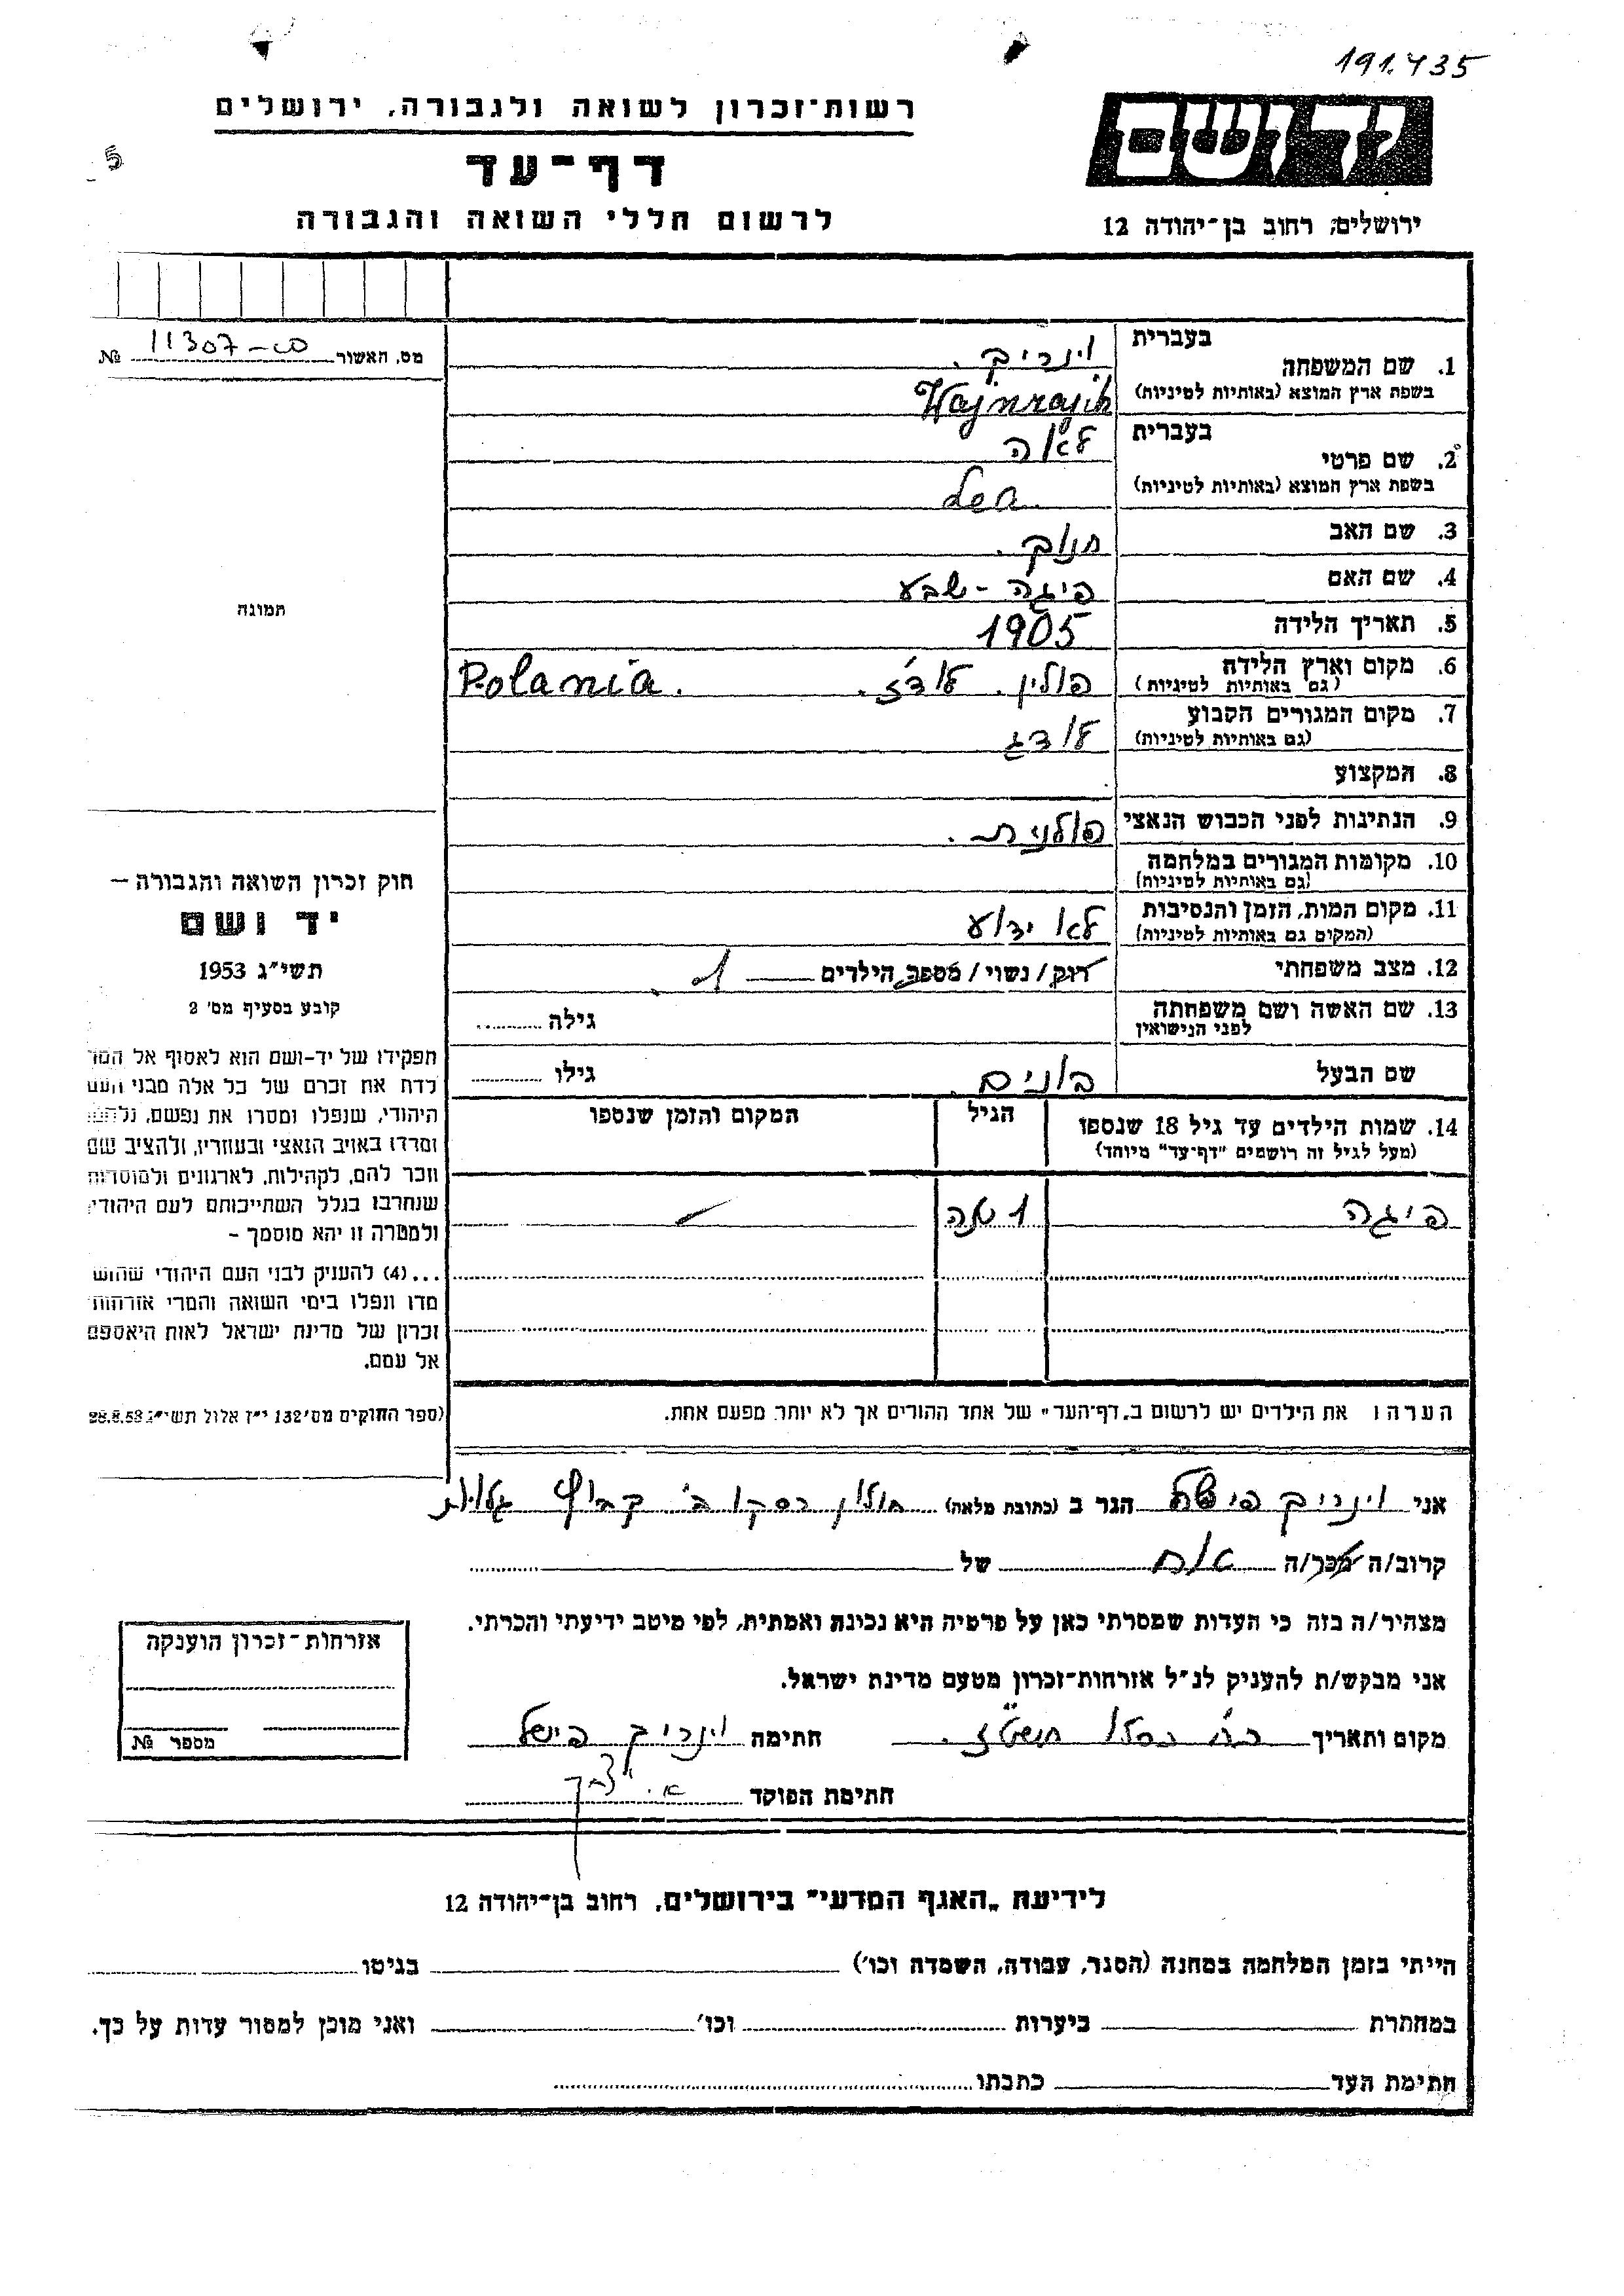 191.435
רשות־זכרון לשואה ולגבורה, ירושלים
יד ושם
5
דף־עד
לרשום חללי השואה והגבורה
ירושלים, רחוב בן־יהודה 12
מס. האשור № 11307-
בעברית
1. שם המשפחה
בשפת ארץ המוצא (באותיות לטיניות)
וינריך.
Wajnrajch
בעברית
2. שם פרטי
בשפת ארץ המוצא (באותיות לטיניות)
לאה
Lea
3. שם האב חנוך.
4. שם האם פיגה - שבע
תמונה
5. תאריך הלידה 1905
6. מקום וארץ הלידה
(גם באותיות לטיניות)
פולין. לודז. Polania.
7. מקום המגורים הקבוע
(גם באותיות לטיניות)
לודז
8. המקצוע
9. הנתינות לפני הכבוש הנאצי פולנית.
10. מקומות המגורים במלחמה
(גם באותיות לטיניות)
11. מקום המות, הזמן והנסיבות
(המקום גם באותיות לטיניות)
לא ידוע
12. מצב משפחתי רוק/נשוי/מספר הילדים 1.
13. שם האשה ושם משפחתה
לפני הנישואין
גילה
שם הבעל בונים. גילו
14. שמות הילדים עד גיל 18 שנספו
(מעל לגיל זה רושמים "דף־עד" מיוחד)
הגיל
המקום והזמן שנספו
פיגה 1 שנה
הערה: את הילדים יש לרשום ב"דף־העד" של אחד ההורים אך לא יותר מפעם אחת.
חוק זכרון השואה והגבורה –
יד ושם
תשי"ג 1953
קובע בסעיף מס' 2
תפקידו של יד-ושם הוא לאסוף אל המו
לדת את זכרם של כל אלה מבני העם
היהודי, שנפלו ומסרו את נפשם, נלחמו
ומרדו באויב הנאצי ובעוזריו, ולהציב שם
וזכר להם, לקהילות, לארגונים ולמוסדות
שנחרבו בגלל השתייכותם לעם היהודי,
ולמטרה זו יהא מוסמך –
...(4) להעניק לבני העם היהודי שהוש
מדו ונפלו בימי השואה והמרי אזרחות
זכרון של מדינת ישראל לאות היאספם
אל עמם.
(ספר החוקים מס' 132 י"ז אלול תשי"ג 28.8.53
אני וינריך פישל הגר ב (כתובת מלאה) חולון רסקו ב' קבוץ גלויות
קרוב/ה מכר/ה אח של
מצהיר/ה בזה כי העדות שמסרתי כאן על פרטיה היא נכונה ואמתית, לפי מיטב ידיעתי והכרתי.
אני מבקש/ת להעניק לנ"ל אזרחות־זכרון מטעם מדינת ישראל.
מקום ותאריך כסלו תשט"ז. חתימה וינריך פישל
חתימת הפוקד
אזרחות־זכרון הוענקה
מספר №
לידיעת „האגף המדעי" בירושלים, רחוב בן־יהודה 12
הייתי בזמן המלחמה במחנה (הסגר, עבודה, השמדה וכו') בגיטו
במחתרת ביערות וכו' ואני מוכן למסור עדות על כך.
חתימת העד כתבתו